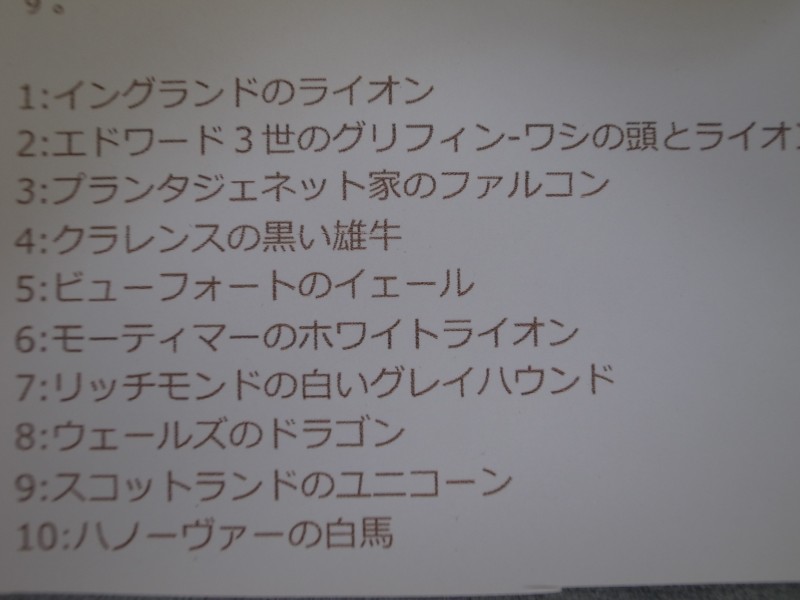 す。
1:イングランドのライオン
2:エドワード３世のグリフィン-ワシの頭とライオ
3:プランタジェネット家のファルコン
4:クラレンスの黒い雄牛
5:ビューフォートのイェール
6:モーティマーのホワイトライオン
7:リッチモンドの白いグレイハウンド
8:ウェールズのドラゴン
9:スコットランドのユニコーン
10:ハノーヴァーの白馬